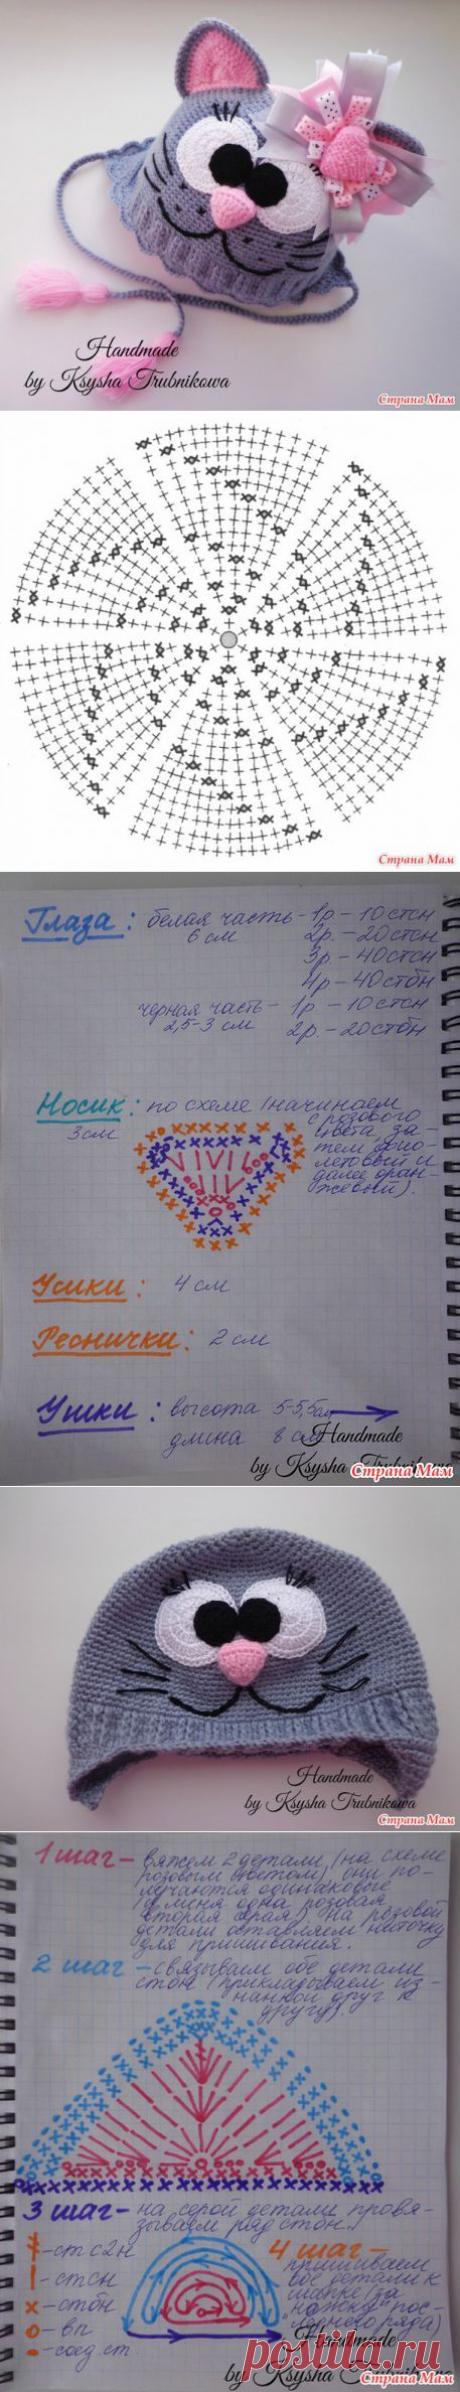 Handmade
by Ksysha Trubnikowa
Страна Мам
Страна Мам
Глаза: белая часть - 1р. - 10 стсн
6 см 2р. - 20 стсн
3р. - 40 стсн
4р - 40 стбн
черная часть - 1р - 10 стсн
2,5-3 см 2р. - 20 стбн
Носик: по схеме (начинаем
3 см с розового
цвета за-
тем фио-
летовый и
далее оран-
жевый).
Усики: 4 см
Реснички: 2 см
Ушки: высота 5-5,5 см
длина 8 см
Handmade
by Ksysha Trubnikowa
Страна Мам
Handmade
by Ksysha Trubnikowa
Страна Мам
1 шаг - вяжем 2 детали (на схеме
розовым цветом), они по-
лучаются одинаковые
(у меня одна розовая
вторая серая). На розовой
детали оставляем ниточку
для пришивания.
2 шаг - связываем обе детали
стбн (прикладываем из-
нанкой друг к
другу).
3 шаг - на серой детали провя-
зываем ряд стбн.
4 шаг -
пришиваем
обе детали к
шапке (за
"ножки" пос-
леднего ряда)
- ст с2н
- стсн
х - стбн
о - вп
- соед.ст.
Handmade
by Ksysha Trubnikowa
Страна Мам
postila.ru